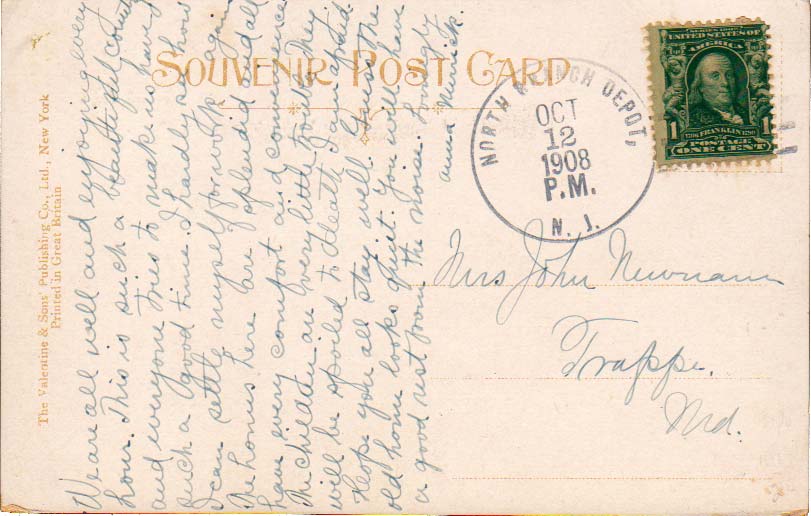 SOUVENIR POST CARD
The Valentine & Sons' Publishing Co., Ltd., New York
Printed in Great Britain
We are all well and enjoying every
hour. This is such a beautiful country
and everyone tries to make us have
such a good time. I hardly see how
I can settle myself for work again
The homes here are splendid and all
have every comfort and convenience
The children are very little trouble. They
will be spoiled to death I am afraid
Hope you all stay well. Guess the
old home looks quiet. You will have
a good rest from the noise. Lovingly
Anna Merrick.
NORTH BRANCH DEPOT,
OCT
12
1908
P.M.
N. J.
SERIES 1902
UNITED STATES OF
AMERICA
1706 FRANKLIN 1790
1 POSTAGE 1
ONE CENT
Mrs John Newnam
Trappe.
Md.